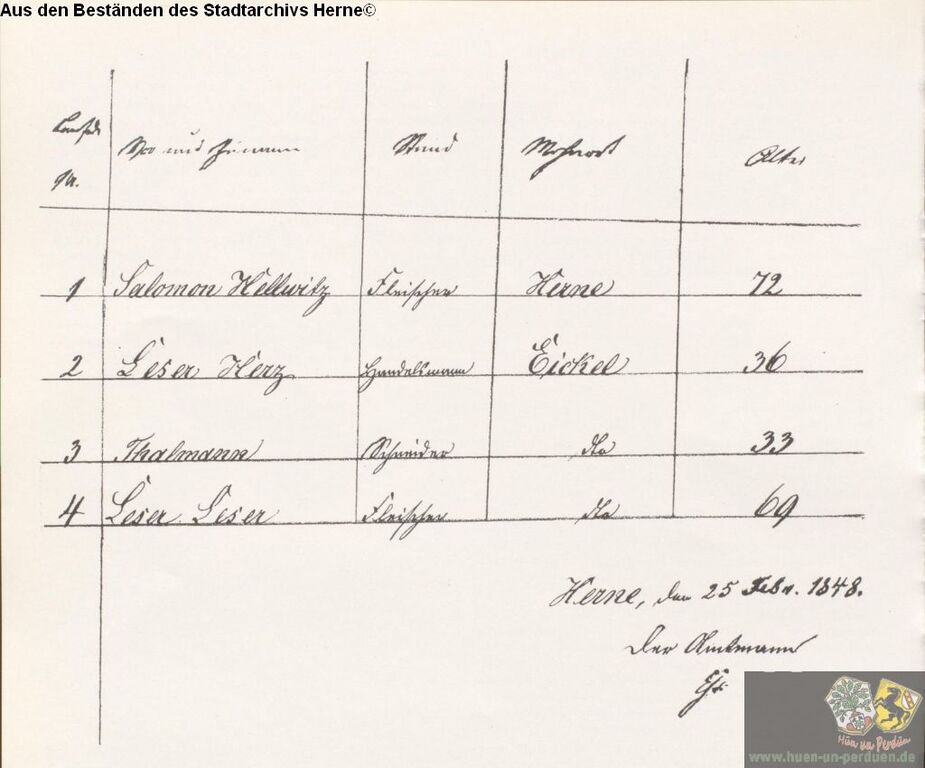 Aus den Beständen des Stadtarchivs Herne©
Laufende Vor und Zunamen Stand Wohnort Alter
No.
1 Salomon Hellwitz Fleischer Herne 72
2 Leser Herz Handelsmann Eickel 36
3 Thalmann Schneider dto 33
4 Leser Leser Fleischer dto 69
Herne, den 25 Febr. 1848.
Der Amtmann
Hün un Perdün
www.huen-un-perduen.de